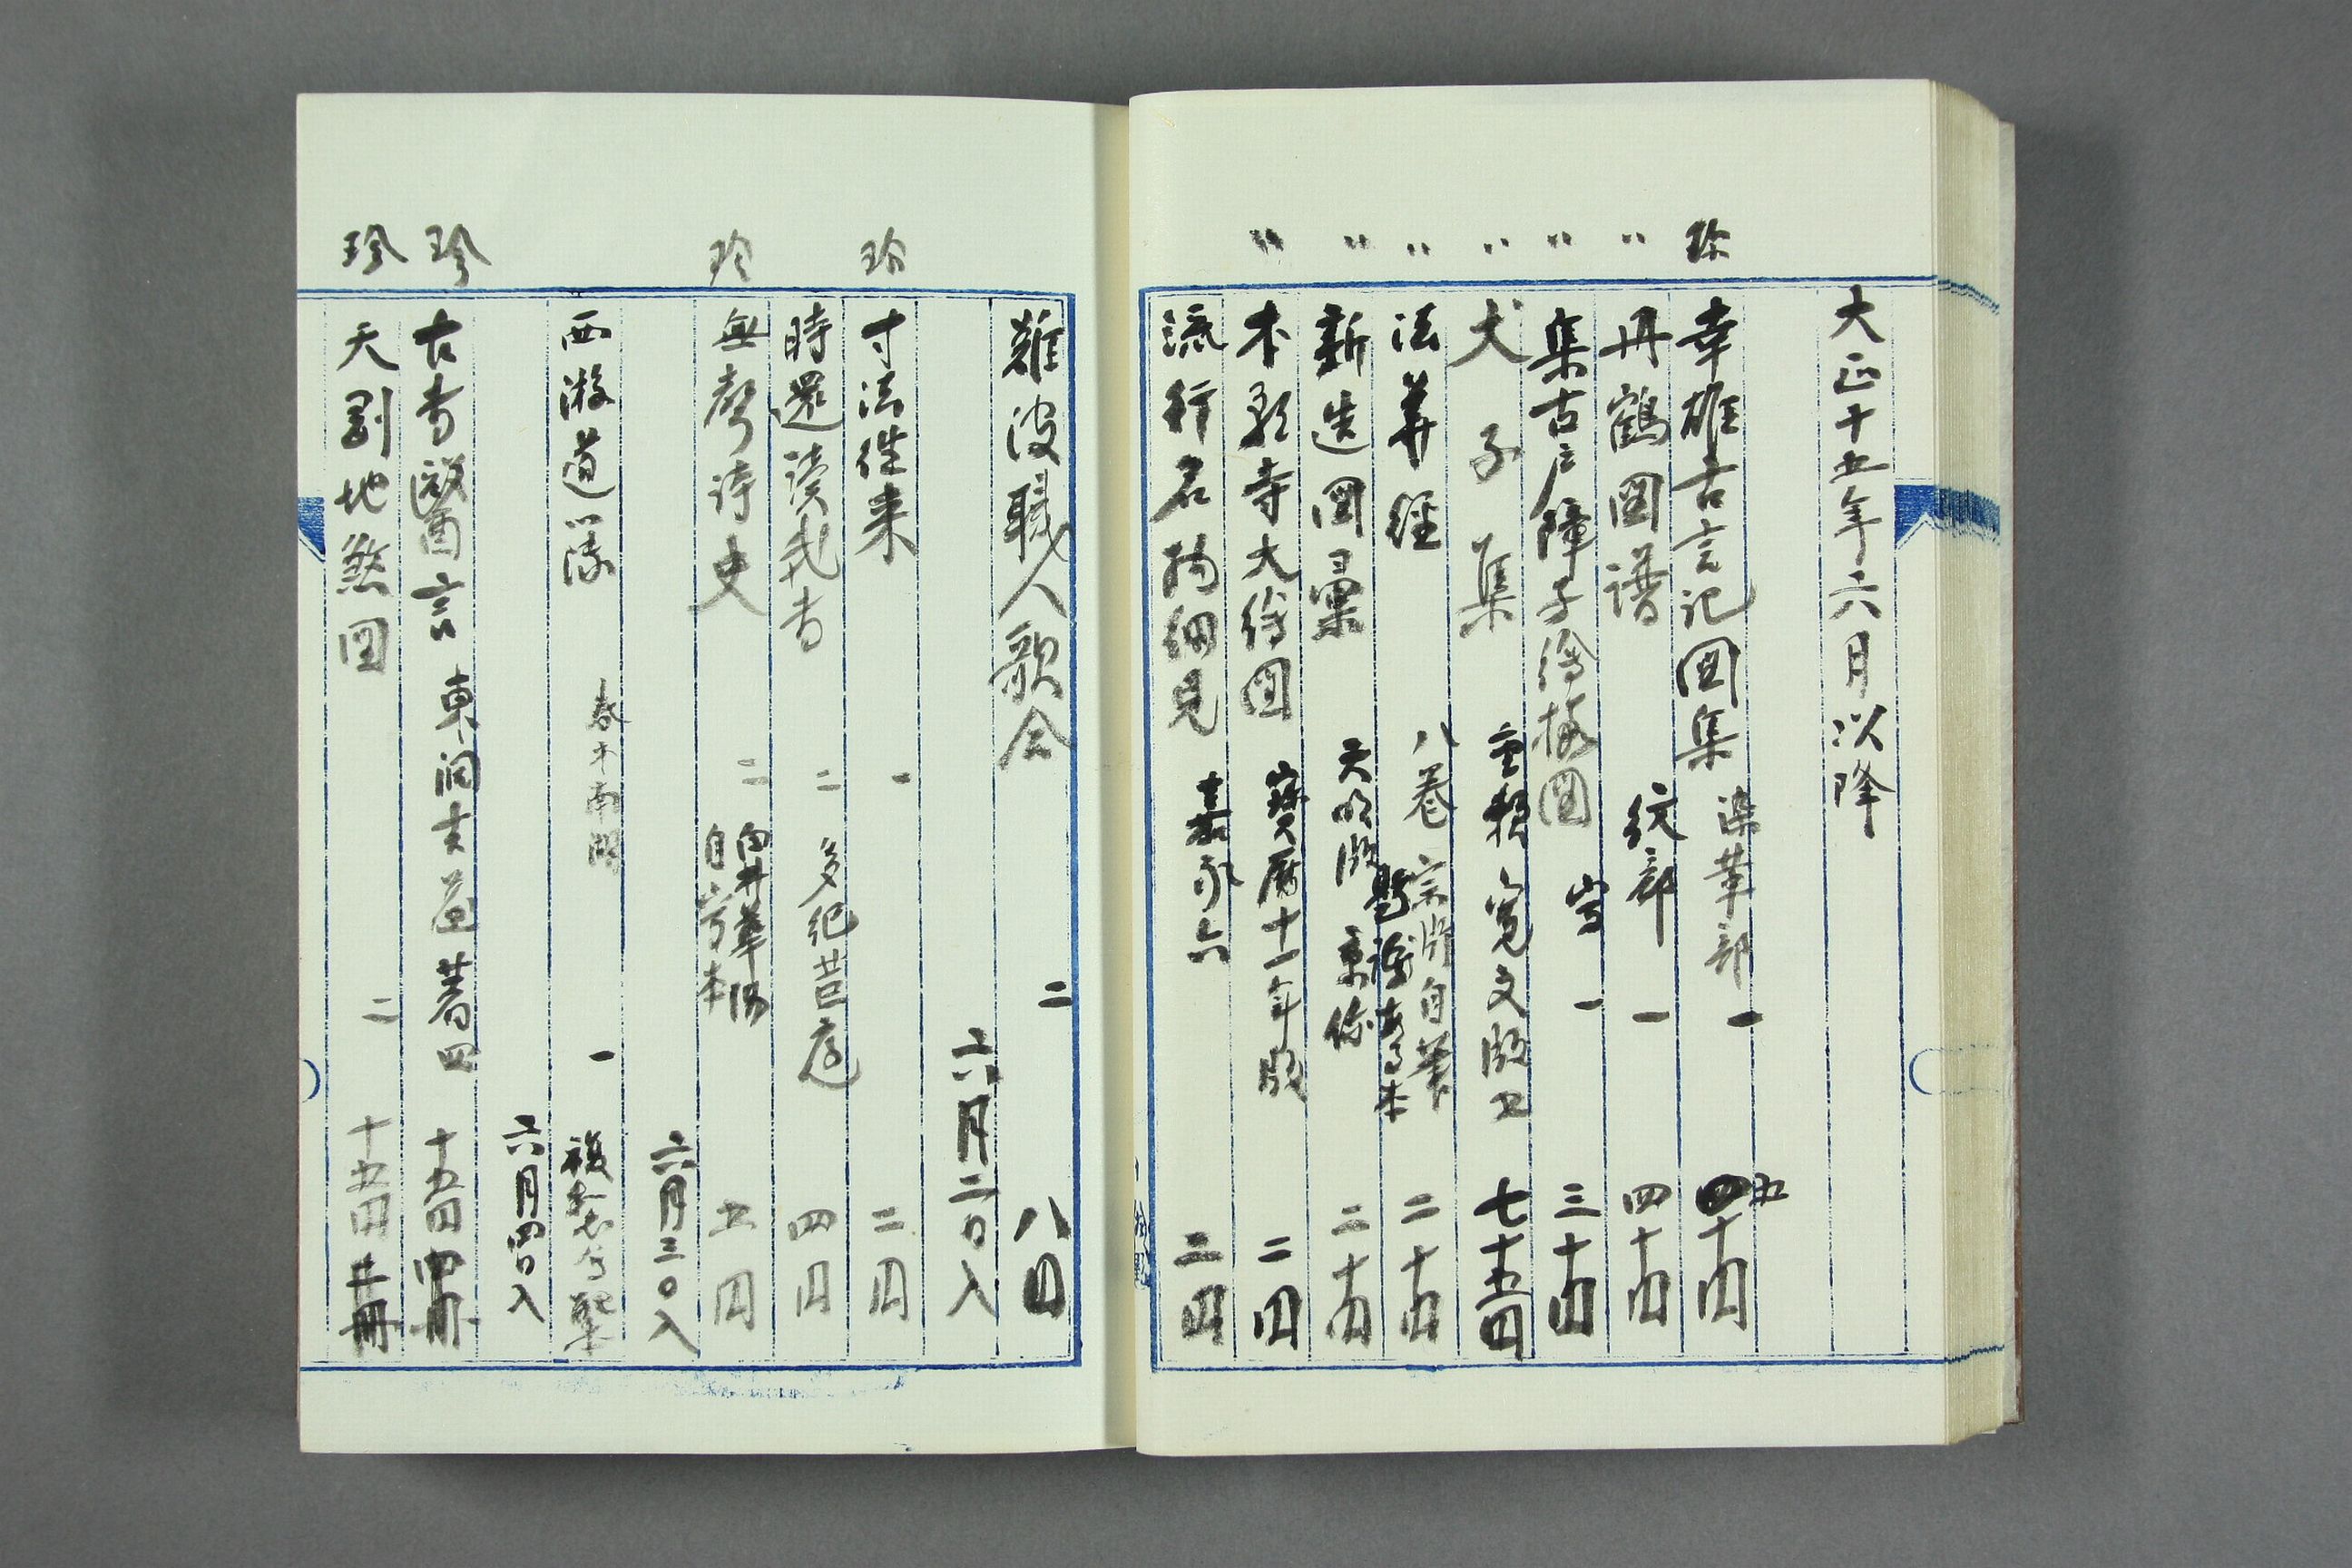 大正十五年六月以降
珍 幸雄古言記図集 染革部 一 五十円
〃 丹鶴図譜 紋部 一 四十円
〃 集古戸障子絵様図 写 一 三十円
〃 犬子集 重頼 寛文版 五 七十五円
〃 法華経 八巻 宗淵自筆 二十円
〃 新造図彙 天明版 京伝 二十円
〃 本願寺大絵図 宝暦十一年版 二円
流行名物細見 嘉永六 二円
難波職人歌合 二 八円
六月二日入
珍 寸法往来 一 二円
時還読我書 二 多紀茝庭 四円
珍 無声詩史 二 向井華陽 自写本 五円
六月三日入
西游道藻 春木南湖 一
六月四日入
珍 古書医言 東洞吉益著 四 十五円
珍 天罡地煞図 二 十五円